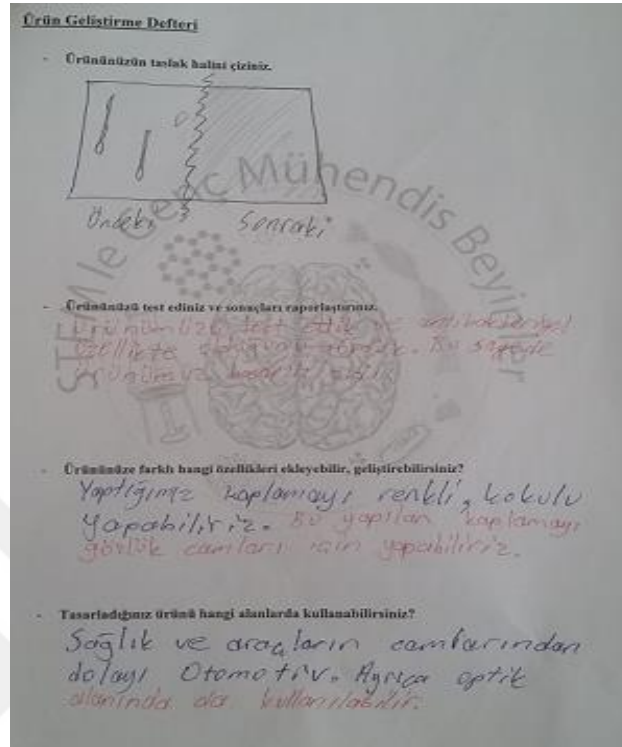 Ürün Geliştirme Defteri
- Ürününüzün taslak halini çiziniz.
Önceki Sonraki
STEM'le Genç Mühendis Beyinler
- Ürününüzü test ediniz ve sonuçları raporlaştırınız.
Ürünümüzü test ettik ve antibakteriyel
özellikte olduğunu gördük. Bu sayede
ürünümüz
- Ürününüze farklı hangi özellikleri ekleyebilir, geliştirebilirsiniz?
Yaptığımız kaplamayı renkli, kokulu
yapabiliriz. Bu yapılan kaplamayı
gözlük camları için yapabiliriz.
- Tasarladığınız ürünü hangi alanlarda kullanabilirsiniz?
Sağlık ve araçların camlarından
dolayı Otomotiv. Ayrıca optik
alanında da kullanılabilir.